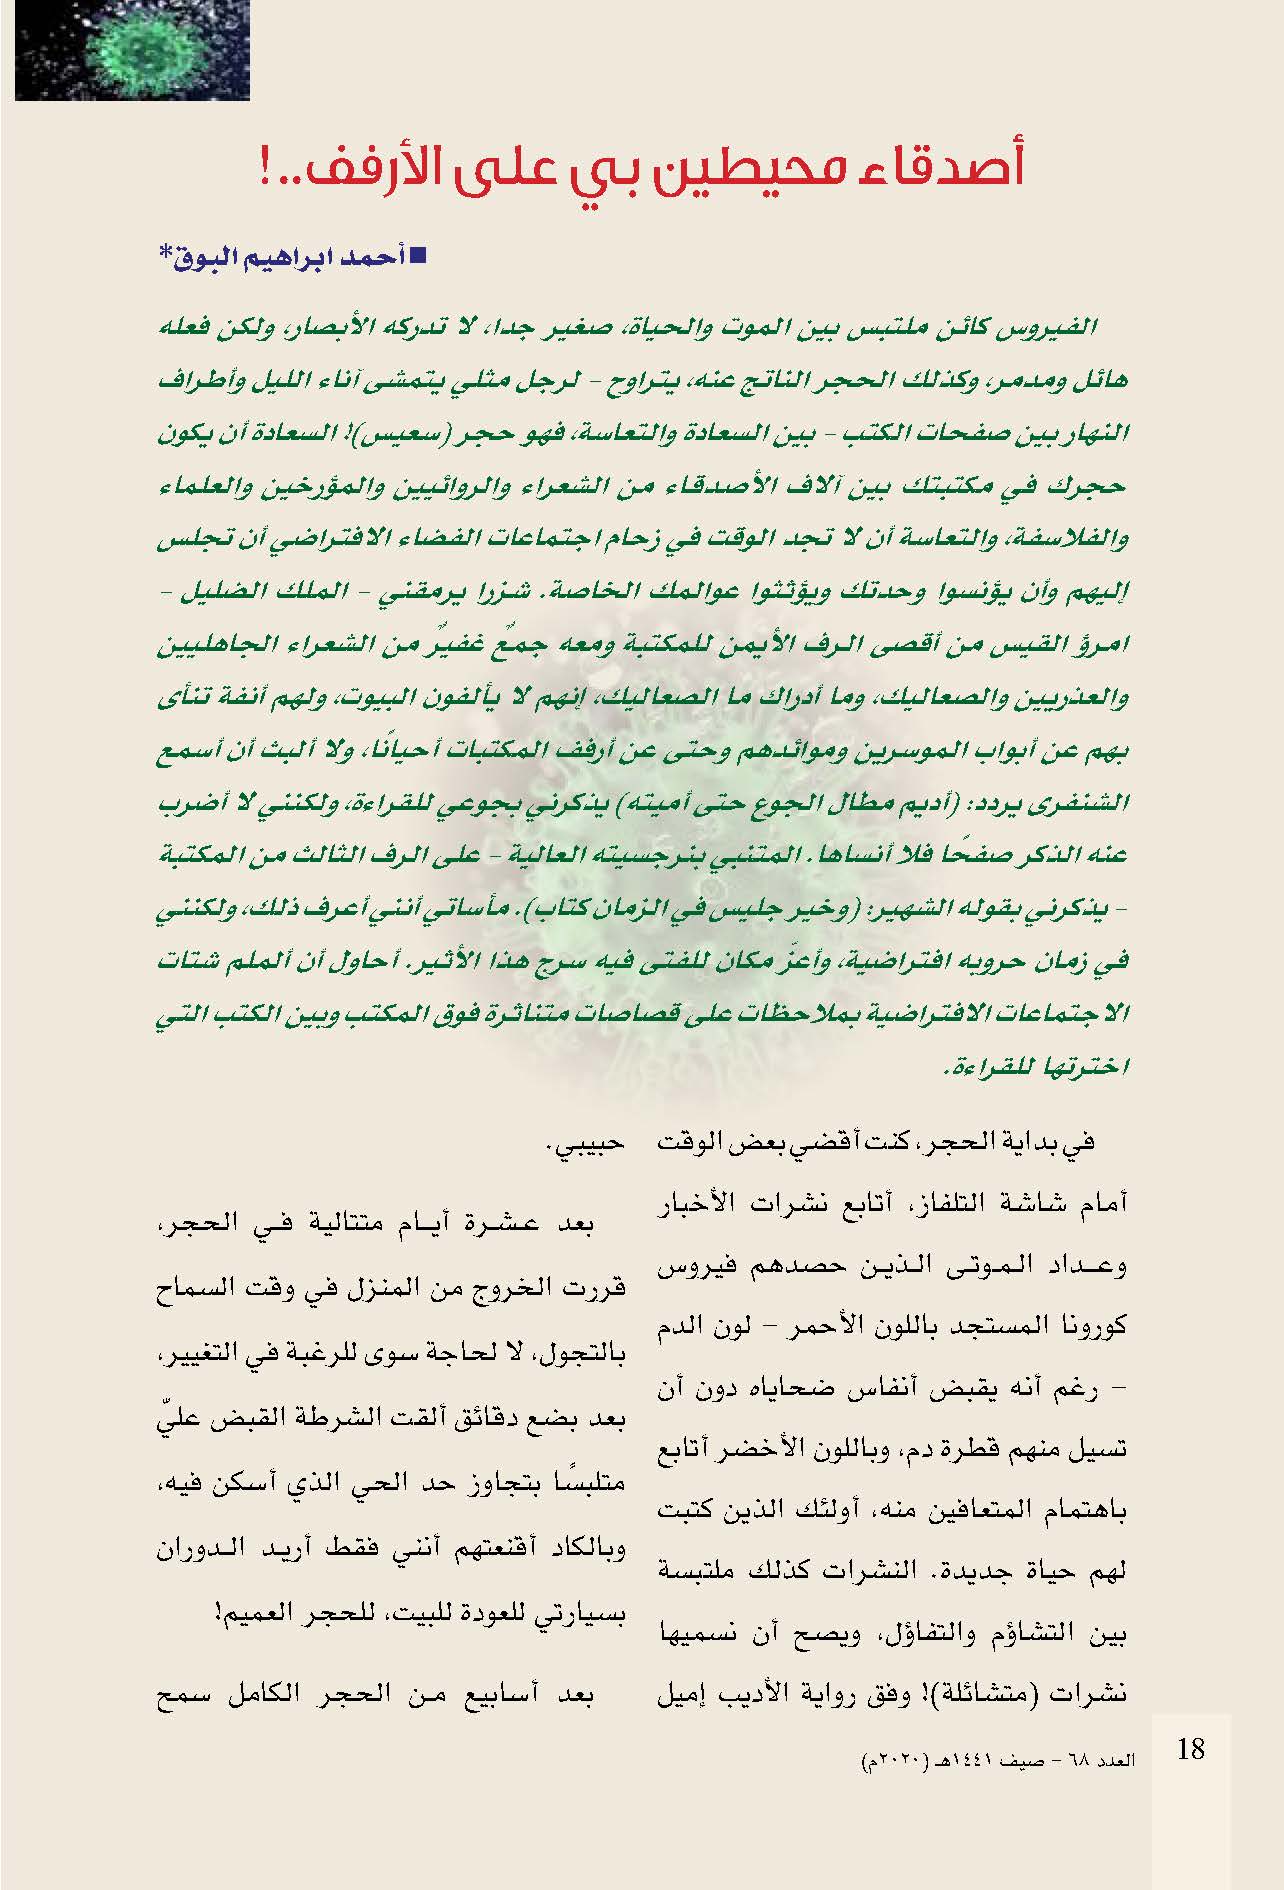 أصدقاء محيطين بي على الأرفف..!
■ أحمد ابراهيم البوق*
الفيروس كائن ملتبس بين الموت والحياة، صغير جدا، لا تدركه الأبصار، ولكن فعله
هائل ومدمر، وكذلك الحجر الناتج عنه، يتراوح – لرجل مثلي يتمشى آناء الليل وأطراف
النهار بين صفحات الكتب – بين السعادة والتعاسة، فهو حجر (سعيس)! السعادة أن يكون
حجرك في مكتبتك بين آلاف الأصدقاء من الشعراء والروائيين والمؤرخين والعلماء
والفلاسفة، والتعاسة أن لا تجد الوقت في زحام اجتماعات الفضاء الافتراضي أن تجلس
إليهم وأن يؤنسوا وحدتك ويؤثثوا عوالمك الخاصة. شزرا يرمقني – الملك الضليل –
امرؤ القيس من أقصى الرف الأيمن للمكتبة ومعه جمعٌ غفيرٌ من الشعراء الجاهليين
والعذريين والصعاليك، وما أدراك ما الصعاليك، إنهم لا يألفون البيوت، ولهم أنفة تنأى
بهم عن أبواب الموسرين وموائدهم وحتى عن أرفف المكتبات أحيانًا، ولا ألبث أن أسمع
الشنفرى يردد: (أديم مطال الجوع حتى أميته) يذكرني بجوعي للقراءة، ولكنني لا أضرب
عنه الذكر صفحًا فلا أنساها. المتنبي بنرجسيته العالية – على الرف الثالث من المكتبة
– يذكرني بقوله الشهير: (وخير جليس في الزمان كتاب). مأساتي أنني أعرف ذلك، ولكنني
في زمان حروبه افتراضية، وأعزّ مكان للفتى فيه سرج هذا الأثير. أحاول أن ألملم شتات
الاجتماعات الافتراضية بملاحظات على قصاصات متناثرة فوق المكتب وبين الكتب التي
اخترتها للقراءة.
في بداية الحجر، كنت أقضي بعض الوقت
أمام شاشة التلفاز، أتابع نشرات الأخبار
وعداد الموتى الذين حصدهم فيروس
كورونا المستجد باللون الأحمر – لون الدم
– رغم أنه يقبض أنفاس ضحاياه دون أن
تسيل منهم قطرة دم، وباللون الأخضر أتابع
باهتمام المتعافين منه، أولئك الذين كتبت
لهم حياة جديدة. النشرات كذلك ملتبسة
بين التشاؤم والتفاؤل، ويصح أن نسميها
نشرات (متشائلة)! وفق رواية الأديب إميل
حبيبي.
بعد عشرة أيام متتالية في الحجر،
قررت الخروج من المنزل في وقت السماح
بالتجول، لا لحاجة سوى للرغبة في التغيير،
بعد بضع دقائق ألقت الشرطة القبض عليّ
متلبسًا بتجاوز حد الحي الذي أسكن فيه،
وبالكاد أقنعتهم أنني فقط أريد الدوران
بسيارتي للعودة للبيت، للحجر العميم!
بعد أسابيع من الحجر الكامل سمح
العدد ٦٨ – صيف ١٤٤١هـ (٢٠٢٠م)
18